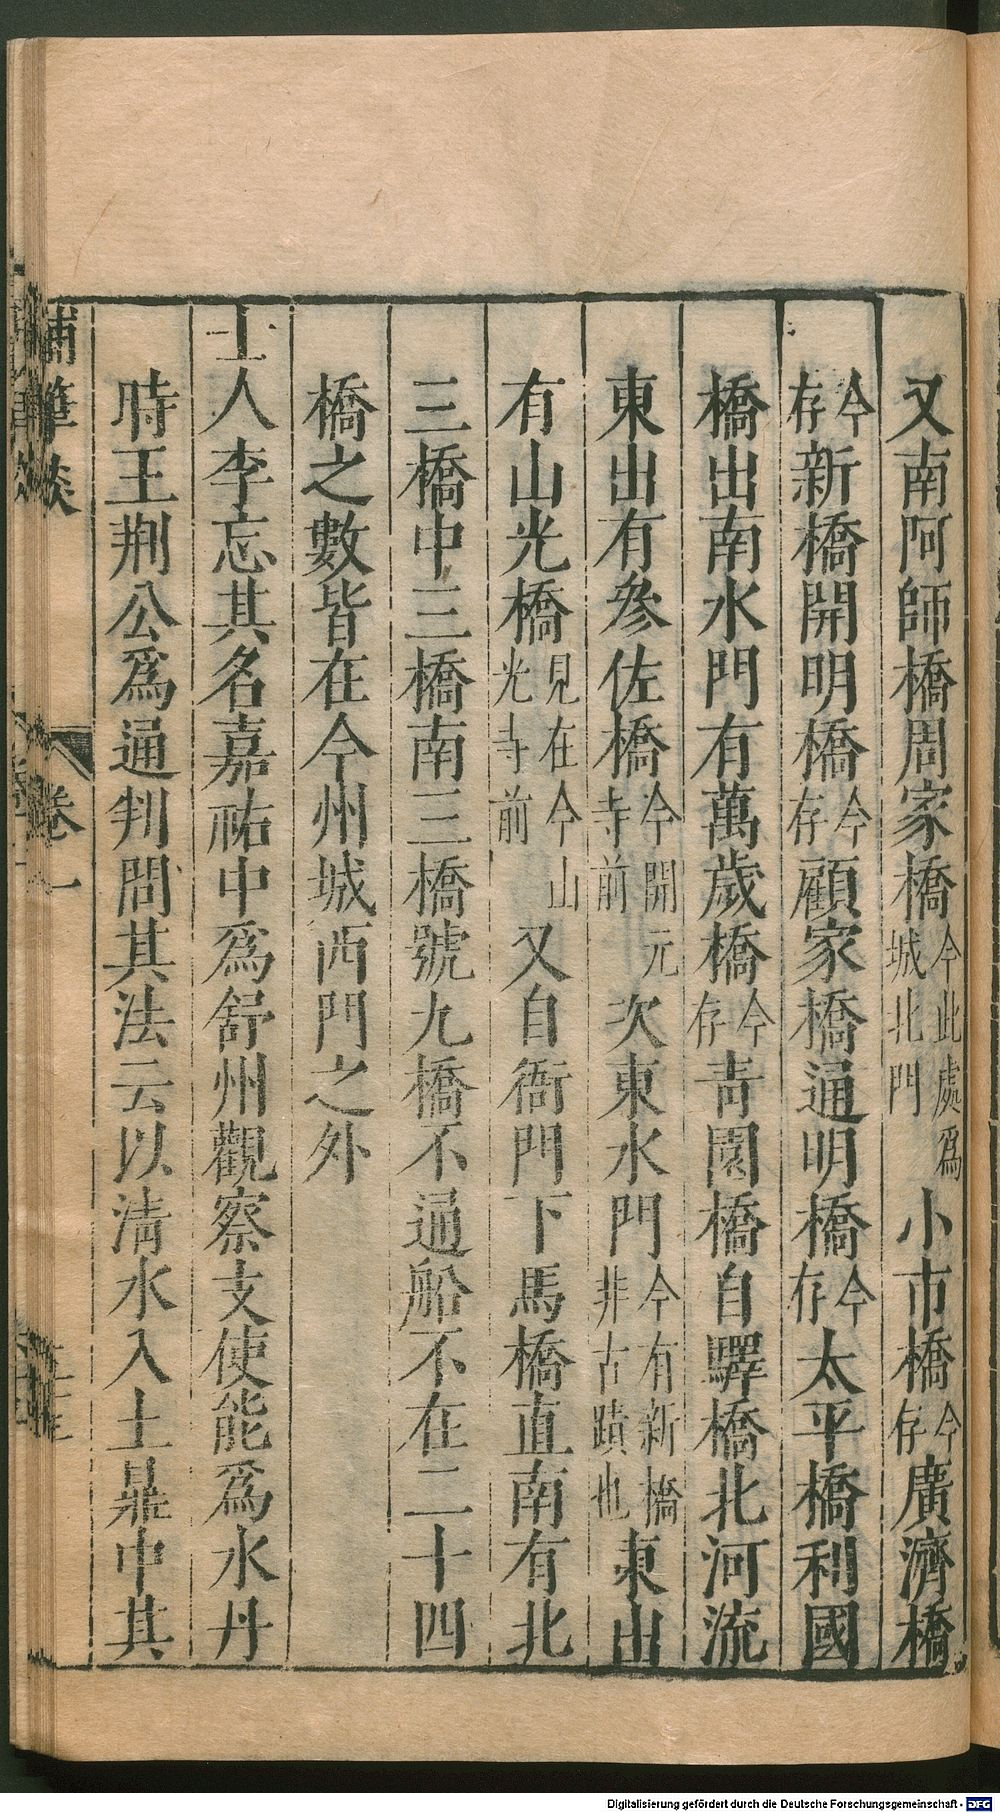 又南阿師橋周家橋今此處爲城北門小市橋今存廣濟橋
今存新橋開明橋今存顧家橋通明橋今存太平橋利國
橋出南水門有萬歲橋今存青園橋自驛橋北河流
東出有參佐橋今開元寺前次東水門今有新橋非古蹟也東出
有山光橋見在今山光寺前又自衙門下馬橋直南有北
三橋中三橋南三橋號九橋不通船不在二十四
橋之數皆在今州城西門之外
士人李忘其名嘉祐中爲舒州觀察支使能爲水丹
時王荆公爲通判問其法云以清水入土鼎中其
補筆談
卷一
Digitalisierung gefördert durch die Deutsche Forschungsgemeinschaft - DFG